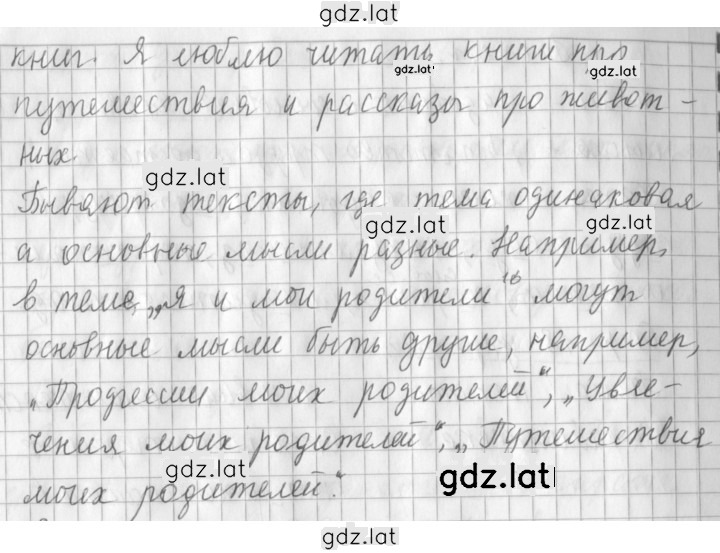 gdz.lat
книг. Я люблю читать книги про
gdz.lat
gdz.lat
путешествия и рассказы про живот-
ных.
gdz.lat
Бывают тексты, где тема одинаковая
gdz.lat
gdz.lat
а основные мысли разные. Например,
в теме „я и мои родители" могут
основные мысли быть другие, например,
„Профессии моих родителей", „Увле-
чения моих родителей", „Путешествия
gdz.lat
gdz.lat
моих родителей".
gdz.lat